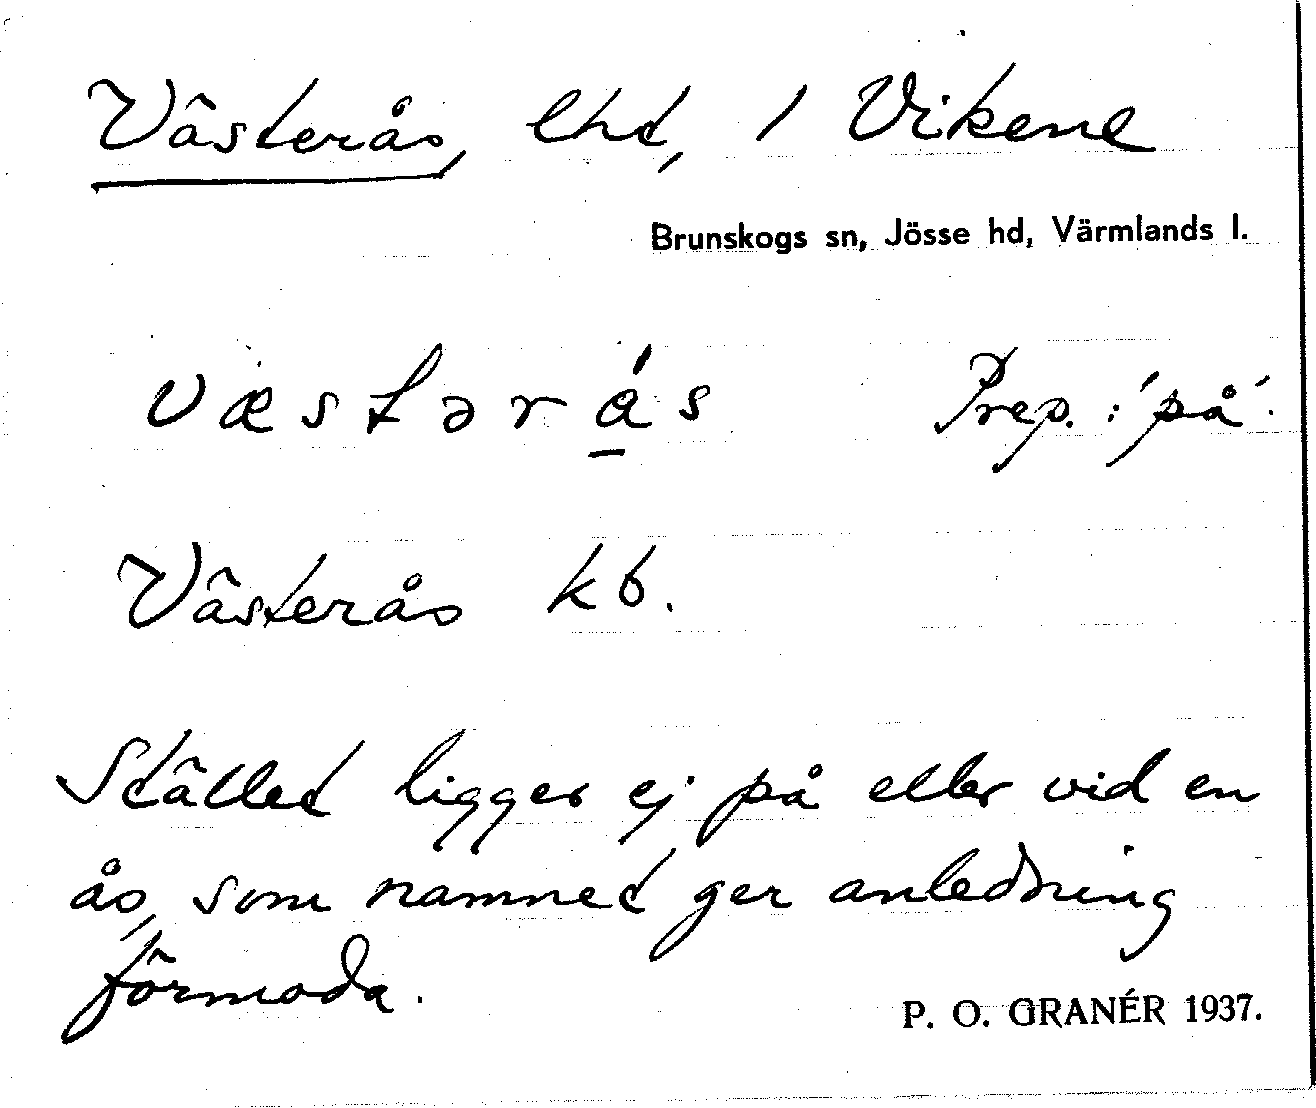 Västerås, lht, 1 Vikene
Brunskogs sn, Jösse hd, Värmlands l.
væstərá̱s Prep.: 'på'.
Västerås kb.
Stället ligger ej på eller vid en
ås, som namnet ger anledning
förmoda.
P. O. GRANÉR 1937.